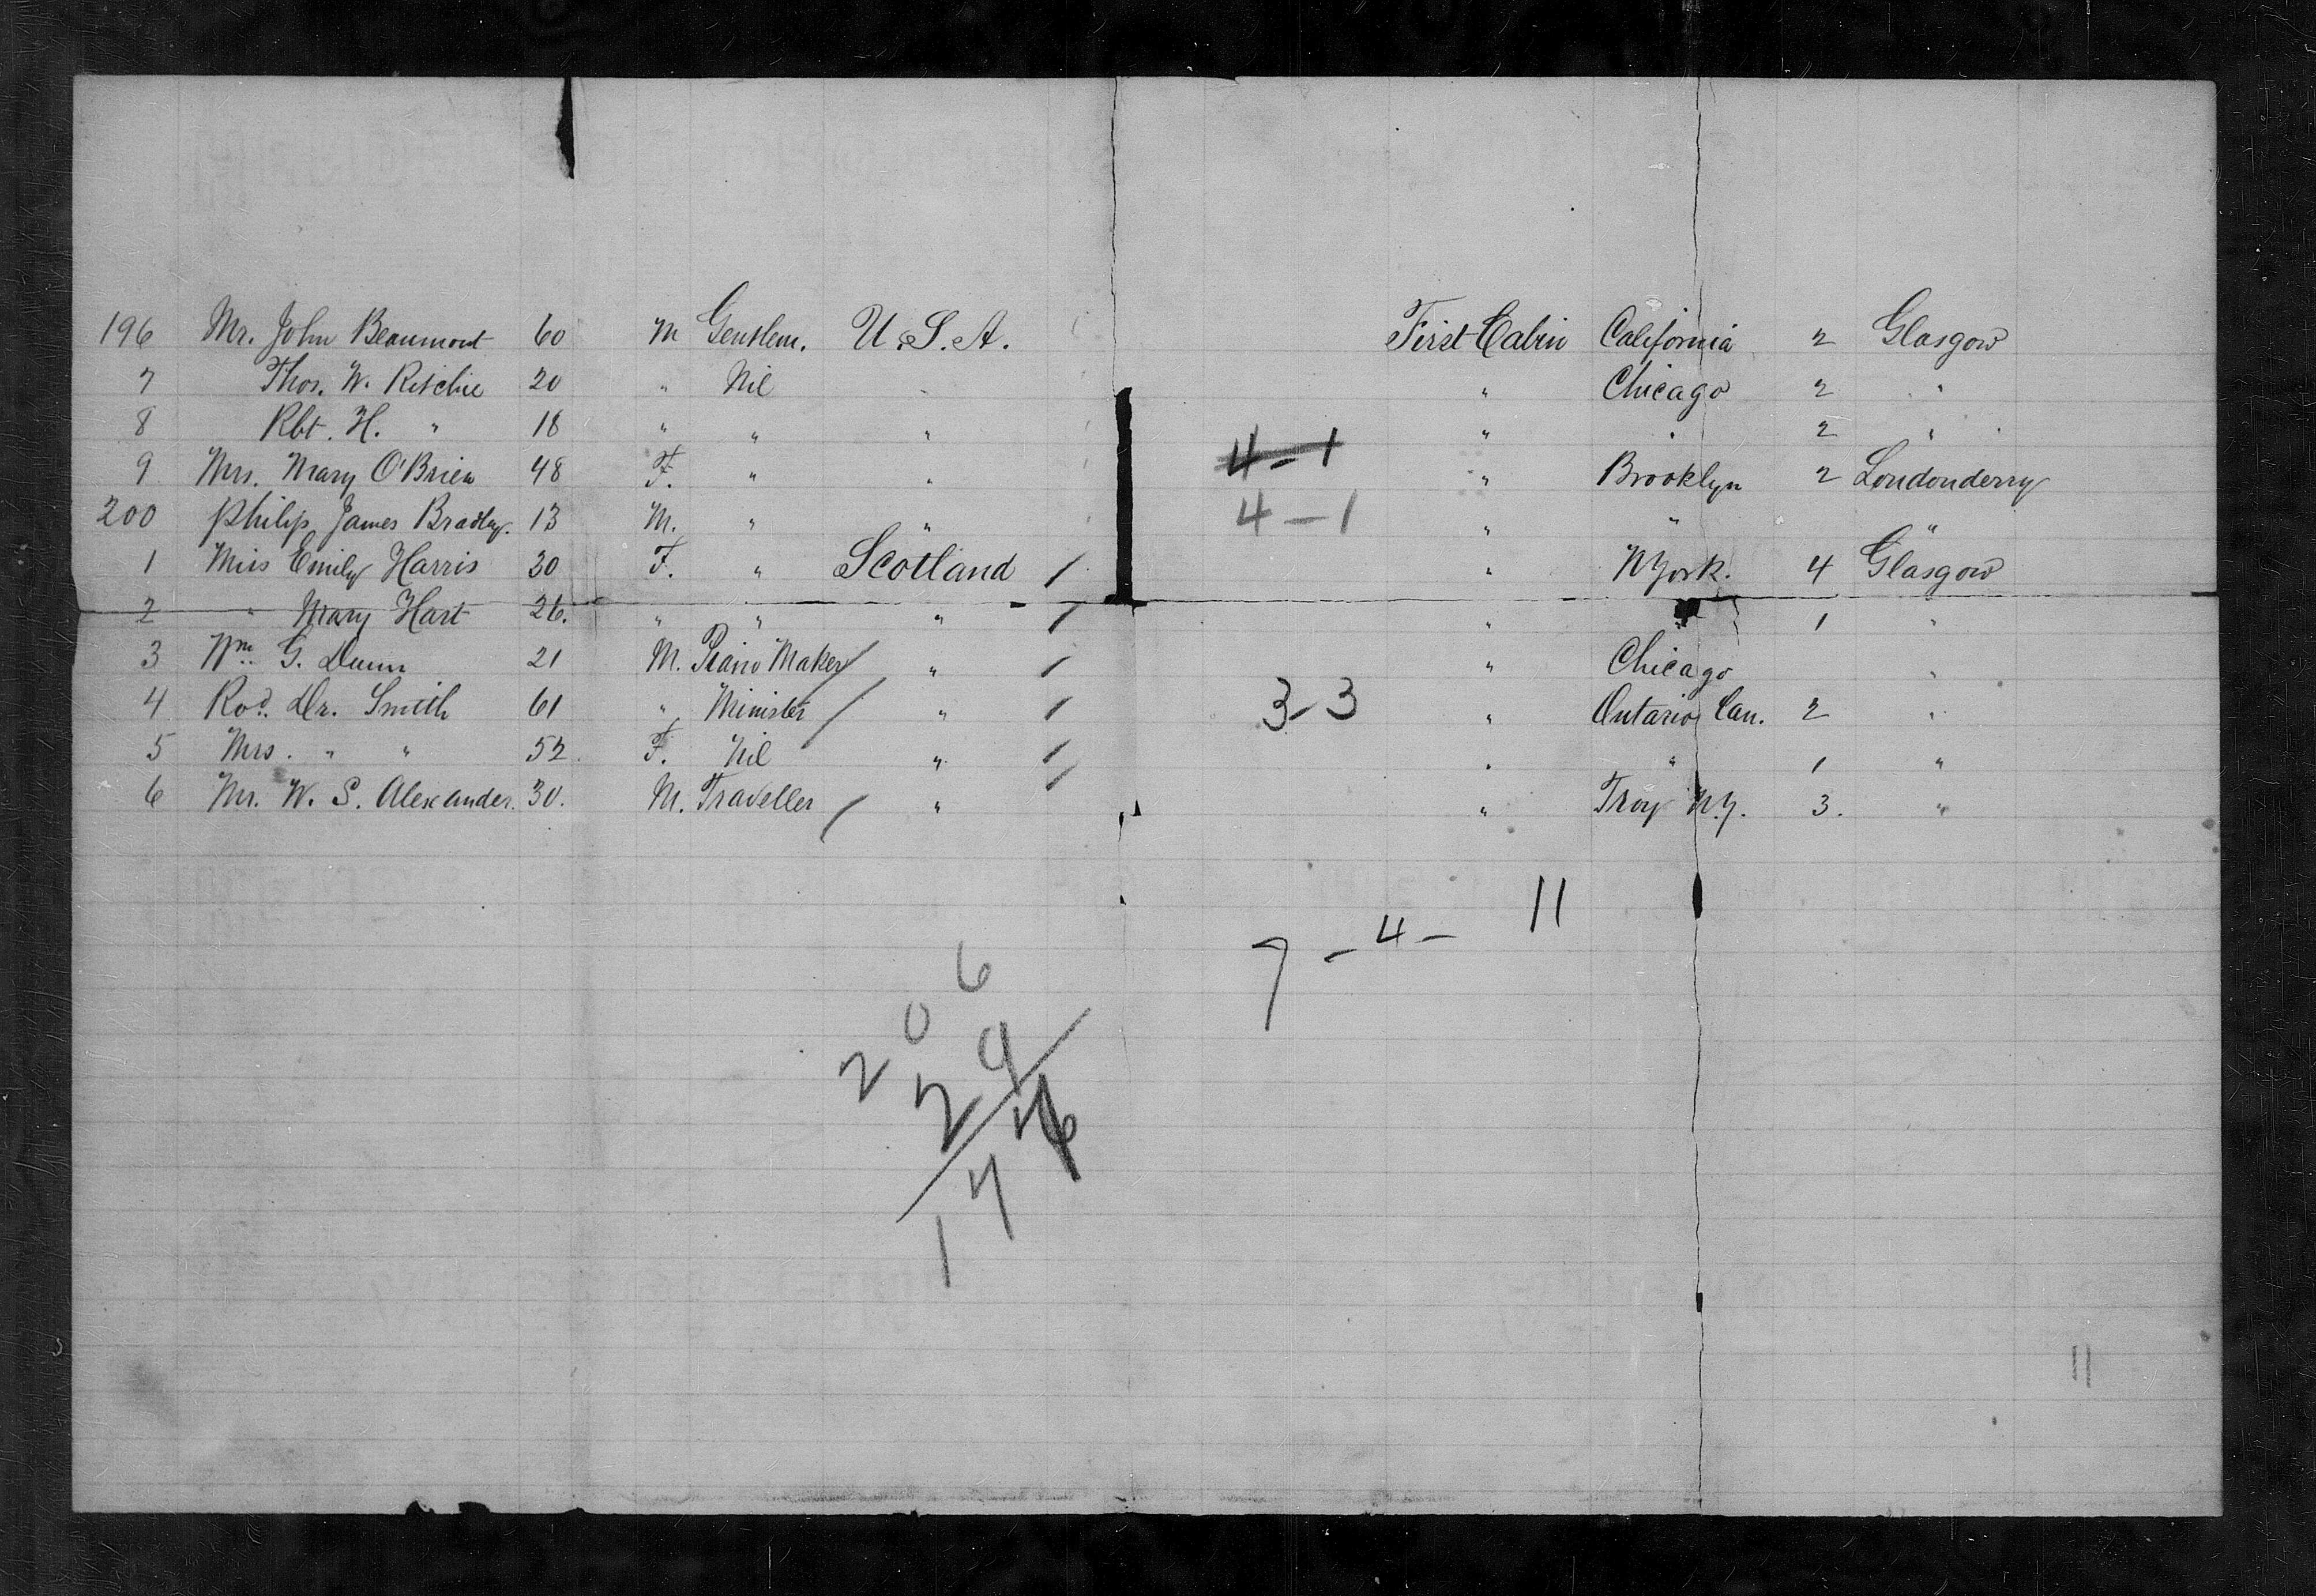 196 Mr. John Beaumont 60 M Gentlem. U.S.A. First Cabin California 2 Glasgow
7 Thos. W. Ritchie 20 " Nil " " Chicago 2 "
8 Rbt. H. " 18 " " " " " 2 "
4-1
9 Mrs. Mary O'Brien 48 F. " " " Brooklyn 2 Londonderry
200 Philip James Bradley. 13 M. " " 4-1 " " "
1 Miss Emily Harris 30 F. " Scotland / " N York. 4 Glasgow
2 " Mary Hart 26. " " " / " " 1 "
3 Wm. G. Dunn 21 M. Piano Maker / " / " Chicago "
4 Rev. Dr. Smith 61 " Minister / " / 3-3 " Ontario Can. 2 "
5 Mrs. " " 52 F. Nil " / " " 1 "
6 Mr. W. S. Alexander. 30. M. Traveller / " / " Troy N.Y. 3. "
7 - 4 - 11
206
29
11